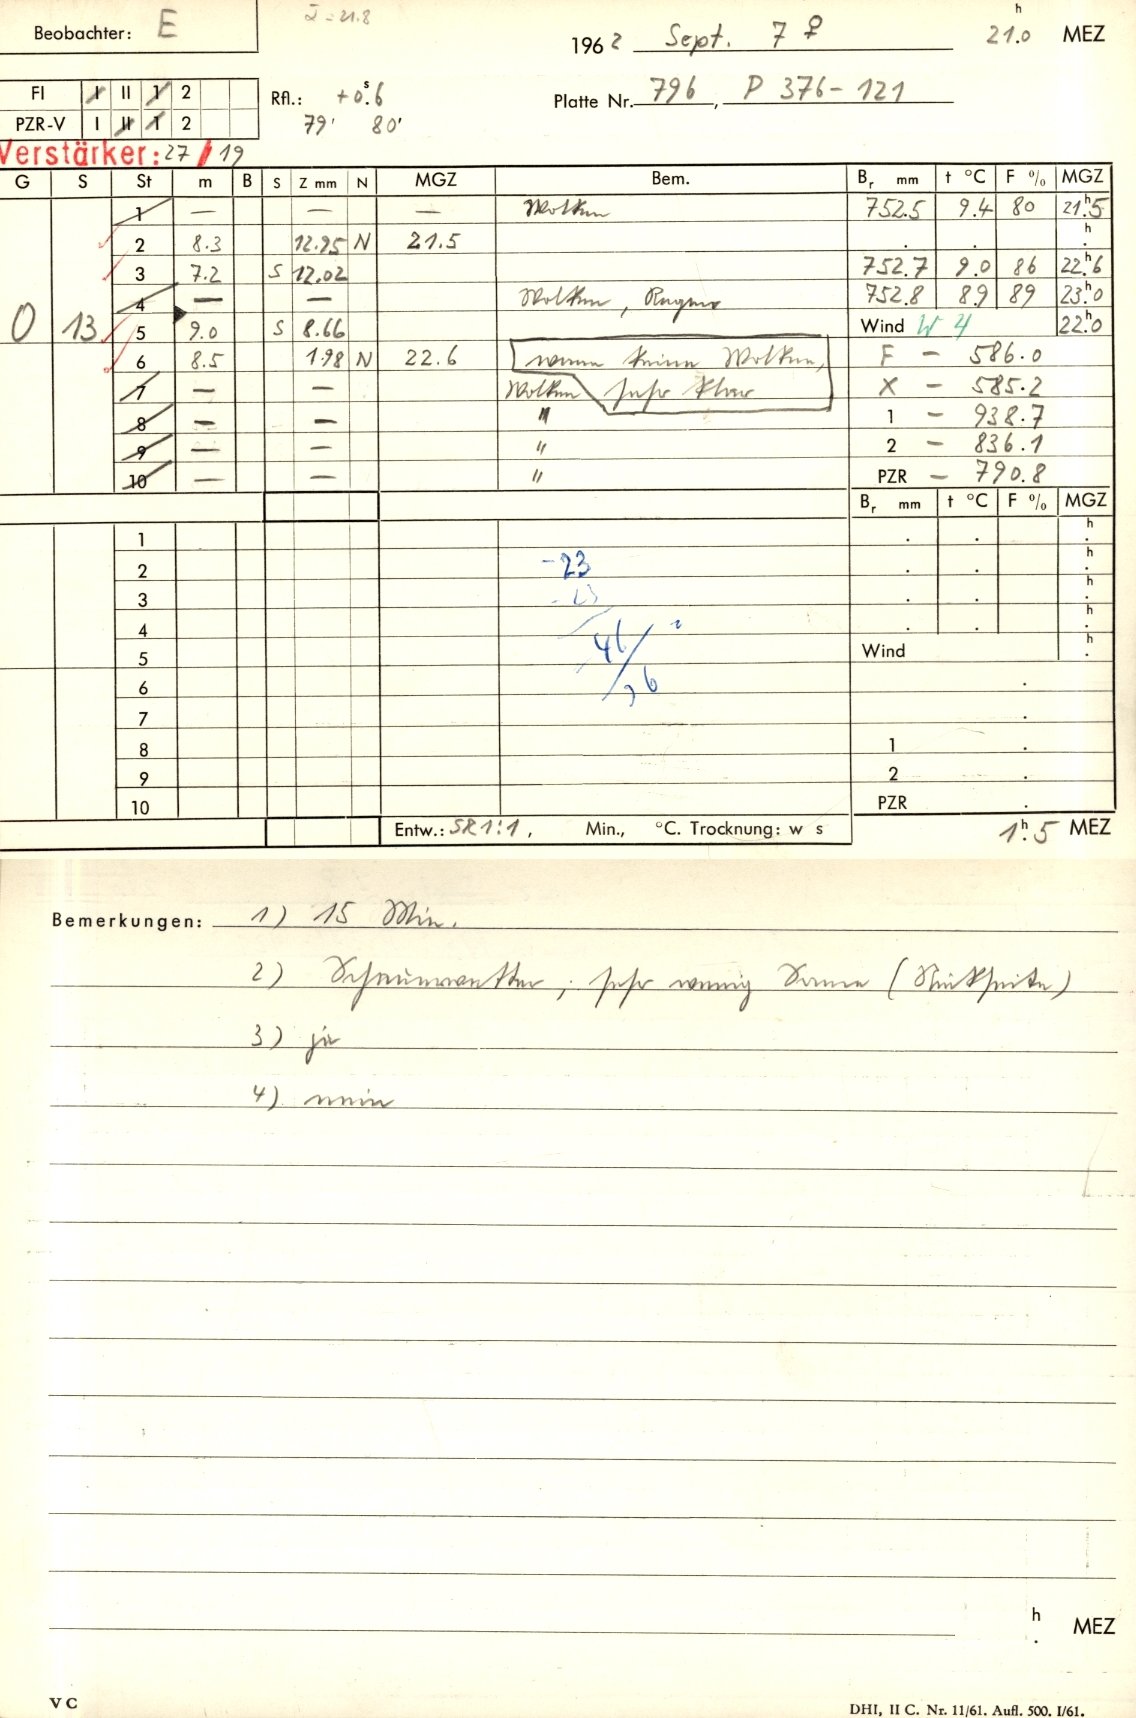 Beobachter: E
I = 21.8
1962 Sept. 7 ♀ 21.0 h MEZ
FI I II 1 2
PZR-V I II 1 2
Rfl.: +0.6 s
79' 80'
Platte Nr. 796, P 376-121
Verstärker: 27 / 19
G S St m B S Z mm N MGZ Bem. Br mm t °C F % MGZ
1 — — — Wolken 752.5 9.4 80 21.5 h
2 8.3 12.95 N 21.5 . . h .
3 7.2 S 12.02 752.7 9.0 86 22.6 h
4 — — Wolken, Regen 752.8 8.9 89 23.0 h
0 13 5 9.0 S 8.66 Wind W 4 22.0 h
6 8.5 1.98 N 22.6 wenn keine Wolken, F — 586.0
7 — — Wolken sehr klar X — 585.2
8 — — " 1 — 938.7
9 — — " 2 — 836.1
10 — — " PZR — 790.8
Br mm t °C F % MGZ
1 . . h .
2 -23 . . h .
3 . . h .
4 . . h .
5 46 Wind h .
6 .
7 .
8 1 .
9 2 .
10 PZR .
Entw.: SR 1:1, Min., °C. Trocknung: w s 1.5 h MEZ
Bemerkungen: 1) 15 Min.
2) Schauerwetter, sehr wenig Sonne (Rückseite)
3) ja
4) nein
h . MEZ
V C
DHI, II C. Nr. 11/61. Aufl. 500. I/61.